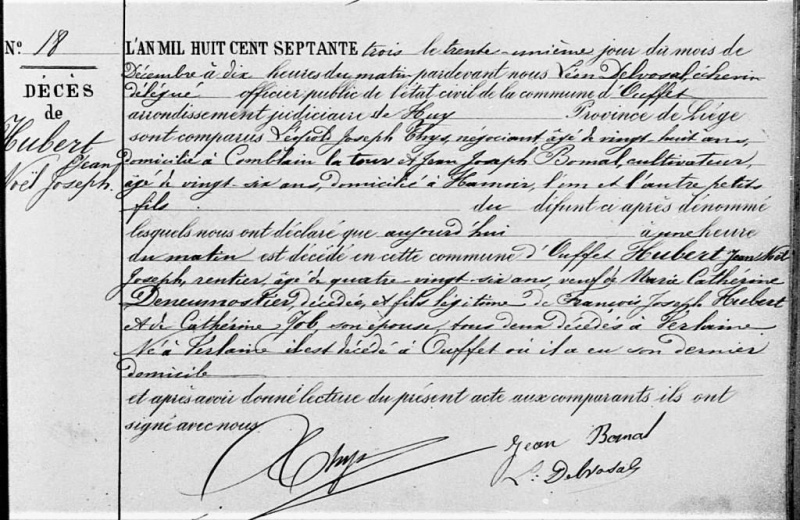 N° 18
DÉCÈS
de
Hubert
Jean
Noël Joseph.
L'AN MIL HUIT CENT SEPTANTE trois le trente-unième jour du mois de
Décembre à dix heures du matin pardevant nous Léon Delvosal échevin
délégué officier public de l'état civil de la commune d'Ouffet
arrondissement judiciaire de Huy Province de Liége
sont comparus Léopold Joseph Thys, négociant, âgé de vingt-huit ans,
domicilié à Comblain la tour et Jean Joseph Bomal, cultivateur,
âgé de vingt-six ans, domicilié à Hamoir, l'un et l'autre petits
fils du défunt ci après dénommé
lesquels nous ont déclaré que aujourd'hui à une heure
du matin est décédé en cette commune d'Ouffet Hubert Jean Noël
Joseph, rentier, âgé de quatre-vingt-six ans, veuf de Marie Cathérine
Deneumostier, décédée, et fils légitime de François Joseph Hubert
et de Cathérine Job, son épouse, tous deux décédés à Verlaine
Né à Verlaine il est décédé à Ouffet où il a eu son dernier
domicile
et après avoir donné lecture du présent acte aux comparants ils ont
signé avec nous
Thys
Jean Bomal
L. Delvosal